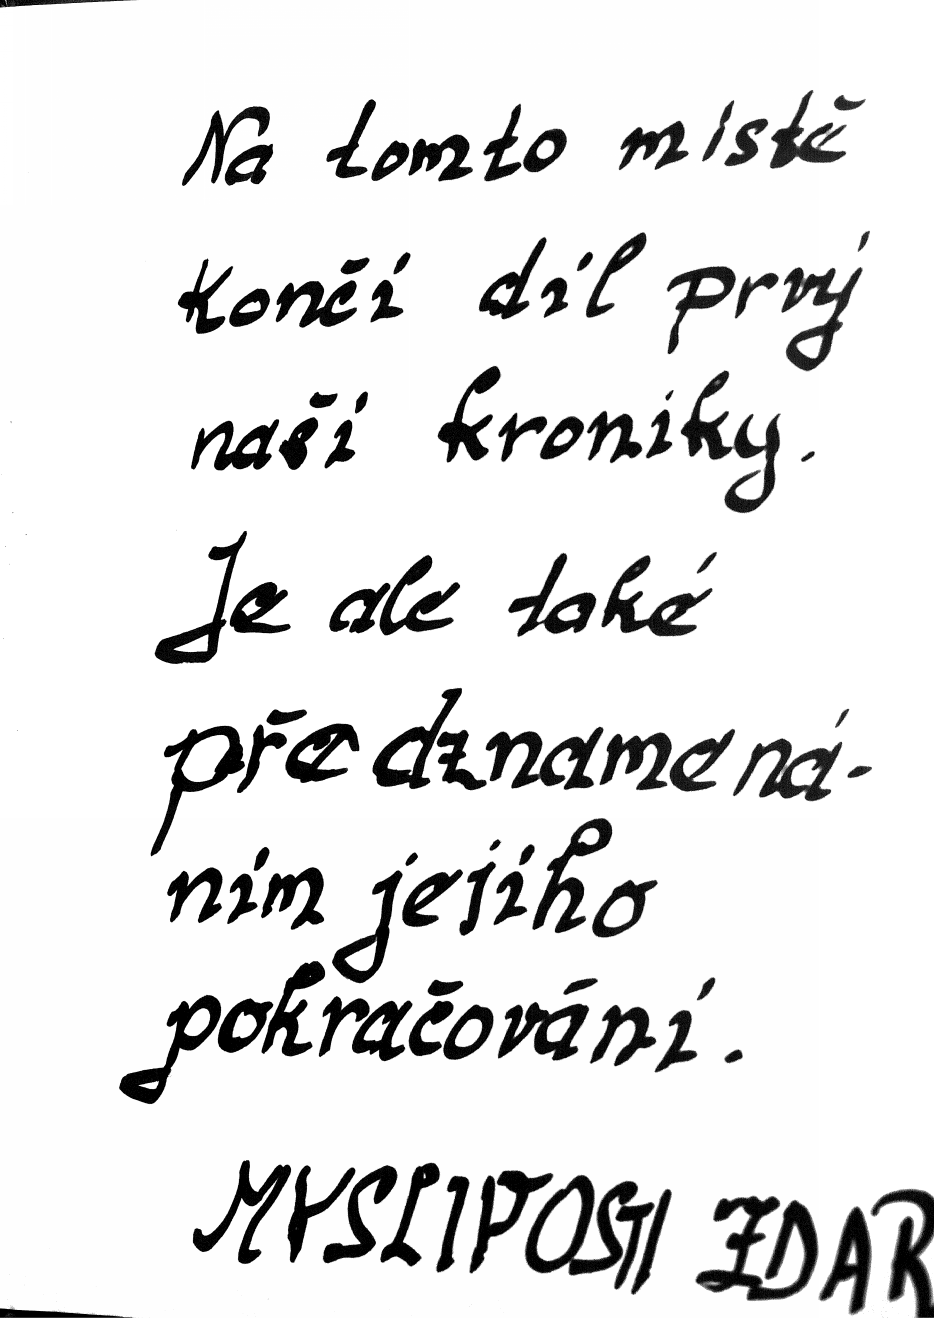 Na tomto místě
končí díl prvý
naší kroniky.
Je ale také
předznamená-
ním jejího
pokračování.
MYSLIVOSTI ZDAR